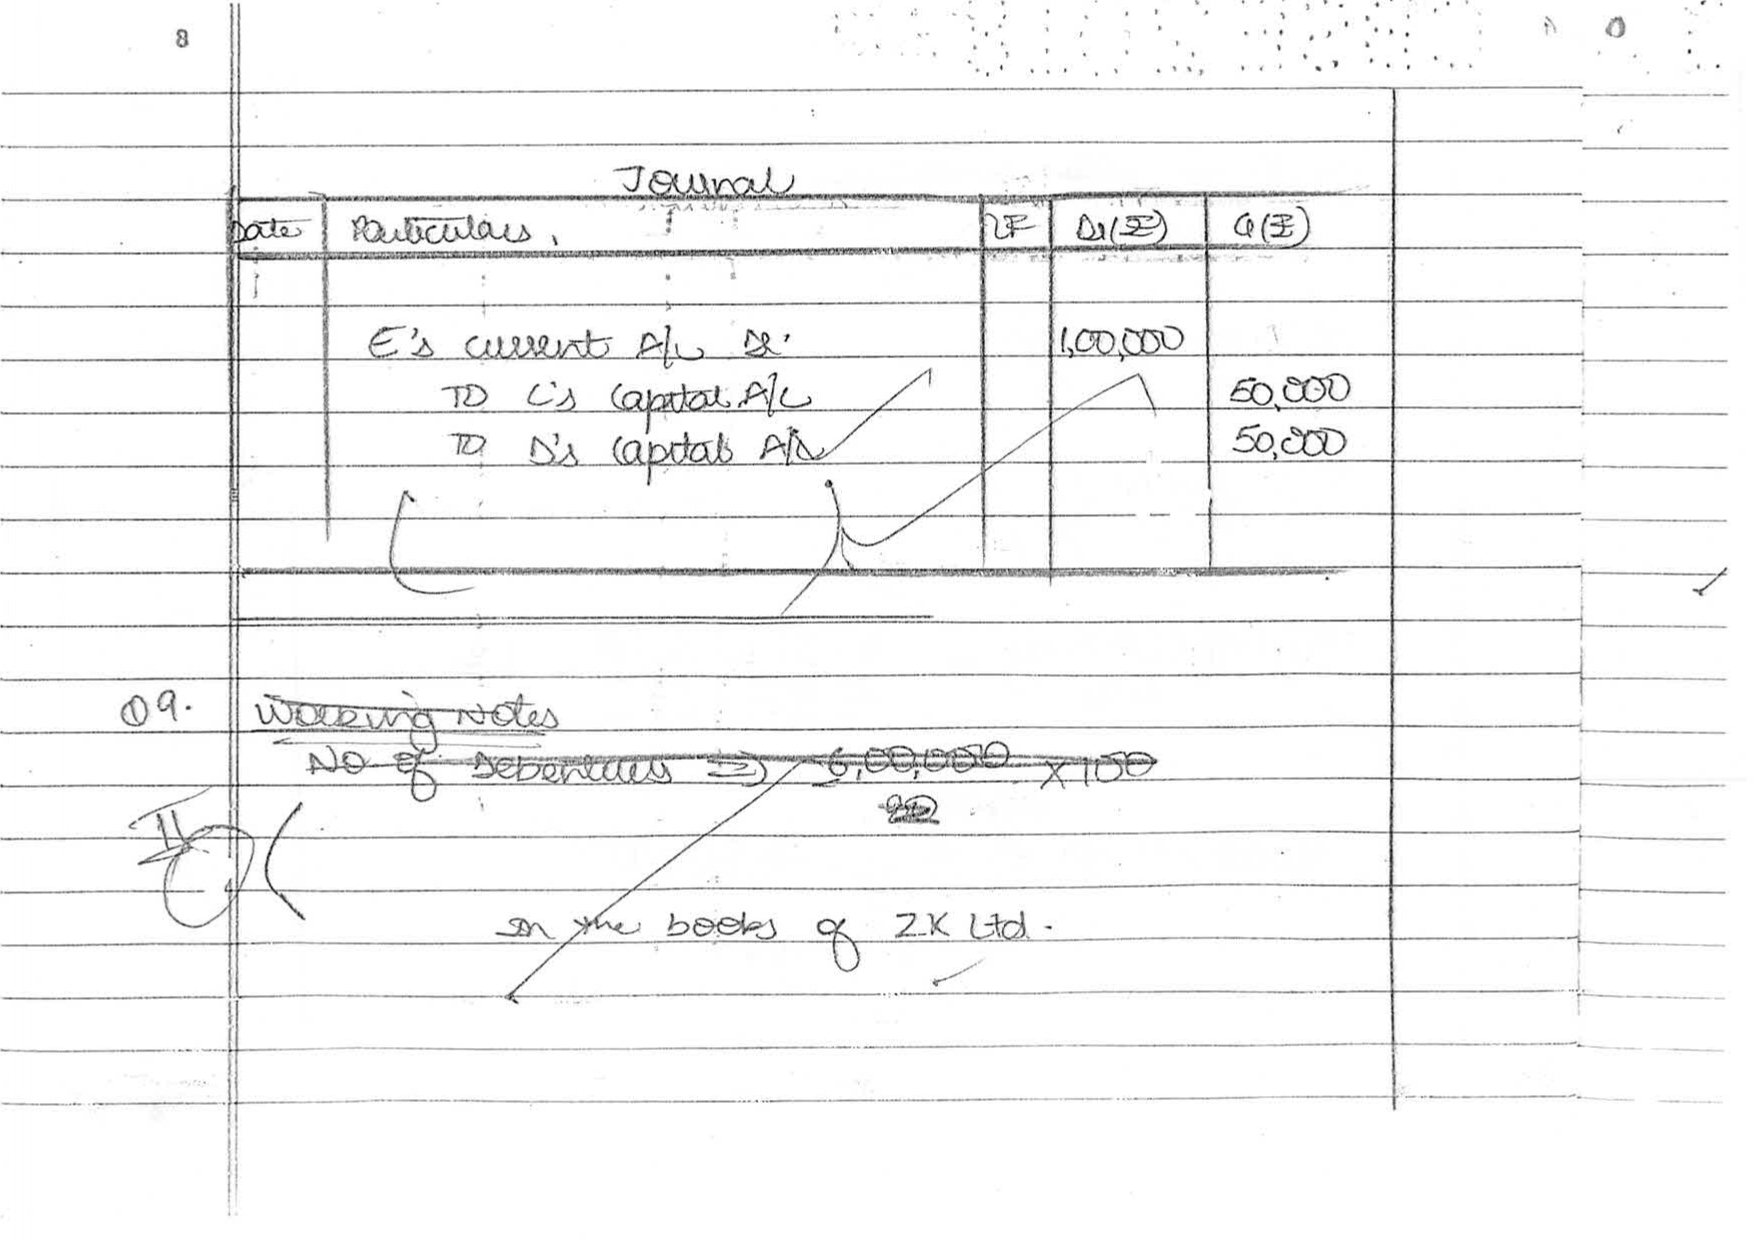 8
Journal
Date Particulars. LF Dr(₹) Cr(₹)
E's current A/c Dr. 1,00,000
TO C's Capital A/c 50,000
TO D's Capital A/c 50,000
09. Working Notes
No of Debentures ⇒ 6,00,000 × 100
In the books of ZK Ltd.